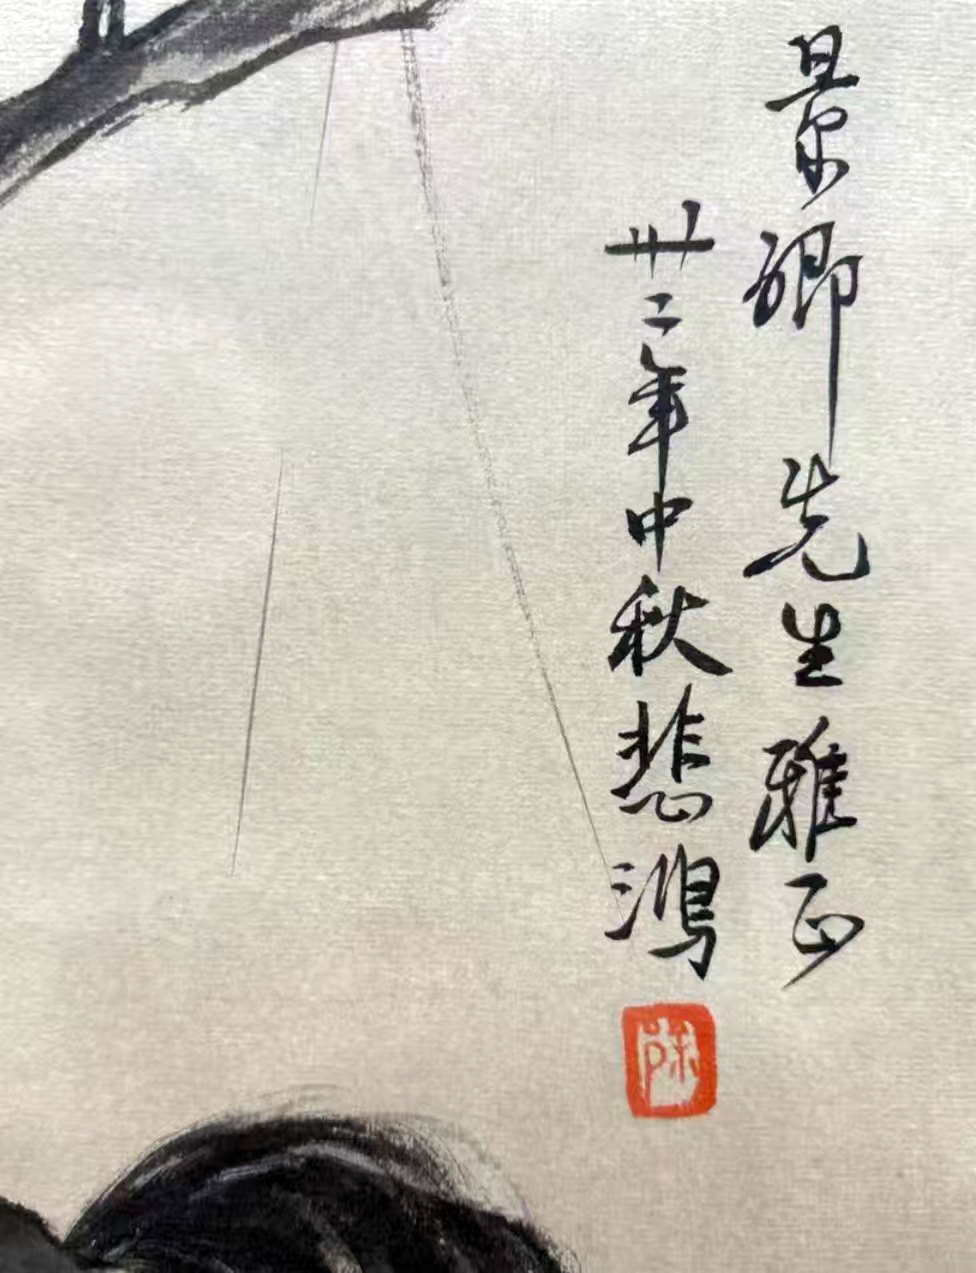 景卿先生雅正
卅二年中秋悲鴻